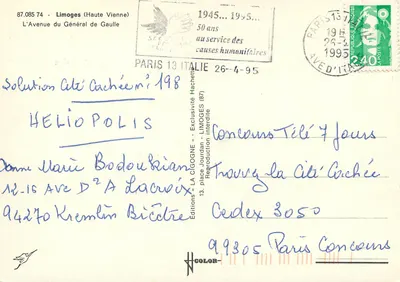 87.085 74 - Limoges (Haute Vienne)
L'Avenue du Général de Gaulle
1945... 1995...
50 ans
au service des
causes humanitaires
PARIS 13 ITALIE 26-4-95
PARIS 13
1995
2,40
Solution Cité Cachée n: 198
HELIOPOLIS
Marie Bodoukian
12-16 Ave D A Lacroix
94270 Kremlin Bicêtre
Editions - LA CIGOGNE - - Exclusivité Hachette
13, place Jourdan - LIMOGES (87)
Reproduction interdite
Concours Télé 7 Jours
Trouvez la Cité Cachée
Cedex 3050
99305 Paris Concours
COLOR